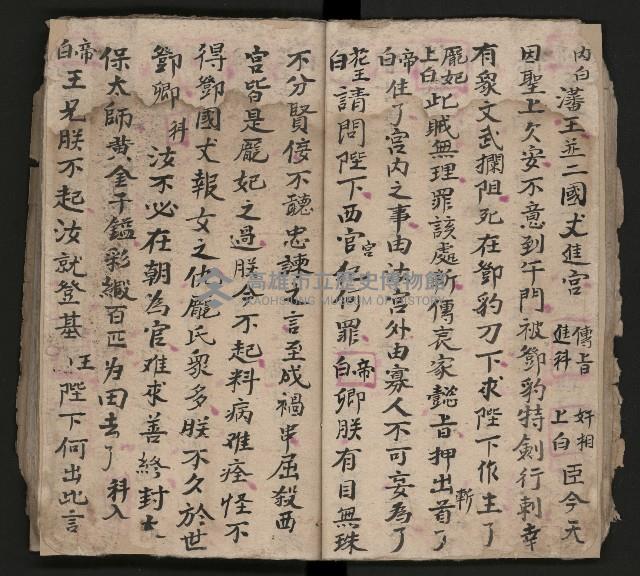 內白 藩王並二國丈進宮 傳旨進科 奸相上白 臣今天
因聖上欠安不意到午門被鄧豹特劍行刺幸
有眾文武攔阻死在鄧豹刀下求陛下作主了
龐妃上白 此賊無理罪該處斬傳哀家懿旨押出斬首了
帝白 住了宮內之事由汝宮外由寡人不可妄為了
花王白 請問陛下西宮犯何罪 帝白 卿朕有目無珠
不分賢佞不聽忠諫之言至成禍串屈殺西
宮皆是龐妃之過朕今不起料病难痊怪不
得鄧國丈報女之仇龐氏眾多朕不久於世
鄧卿 科 汝不必在朝為官难求善終封太
保太師黃金千鎰彩緞百匹為田去了 科入
帝白 王兄朕不起汝就登基 王 陛下何出此言
高雄市立歷史博物館
KAOHSIUNG MUSEUM OF HISTORY